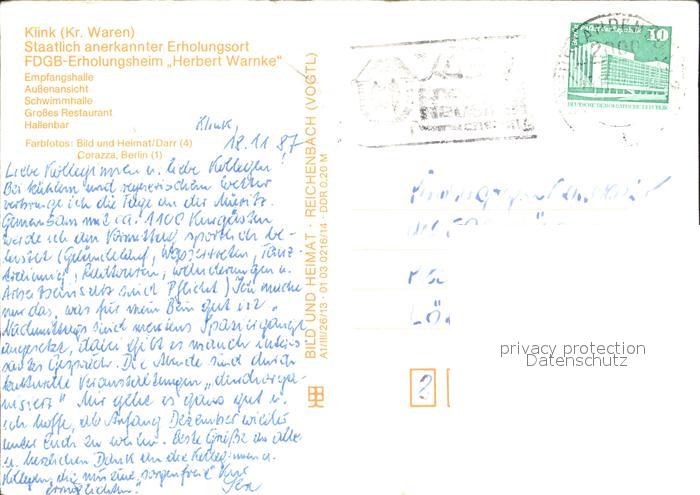 Klink (Kr. Waren)
Staatlich anerkannter Erholungsort
FDGB-Erholungsheim „Herbert Warnke“
Empfangshalle
Außenansicht
Schwimmhalle
Großes Restaurant
Hallenbar
Farbfotos: Bild und Heimat/Darr (4)
Corazza, Berlin (1)
Klink,
18.11.87
Liebe Kolleginnen u. liebe Kollegen!
Bei kühlem und regnerischem Wetter
verbringe ich die Tage an der Müritz.
Gemeinsam mit ca. 1100 Kurgästen
werde ich am Vormittag sportlich be-
lastet (Geländelauf, Wassertreten, Tanz-
, Radtouren, Wanderungen u.
Arbeitseinsatz sind Pflicht) Ich mache
nur das, was für mein Bein gut ist.
Nachmittags sind meistens Spaziergänge
angesetzt, dabei gibt es manch interes-
santes Gespräch. Die Abende sind durch
kulturelle Veranstaltungen „durchorga-
nisiert“ Mir geht es ganz gut u.
ich hoffe, ab Anfang Dezember wieder
unter Euch zu weilen. Beste Grüße an alle
u. herzlichen Dank an die Kolleginnen u.
Kollegen, die mir eine sorgenfreie Kur
ermöglichten!
BILD UND HEIMAT · REICHENBACH (VOGTL)
A1/III/26/13 · 01 03 0216/14 · DDR 0,20 M
10
DEUTSCHE DEMOKRATISCHE REPUBLIK
privacy protection
Datenschutz